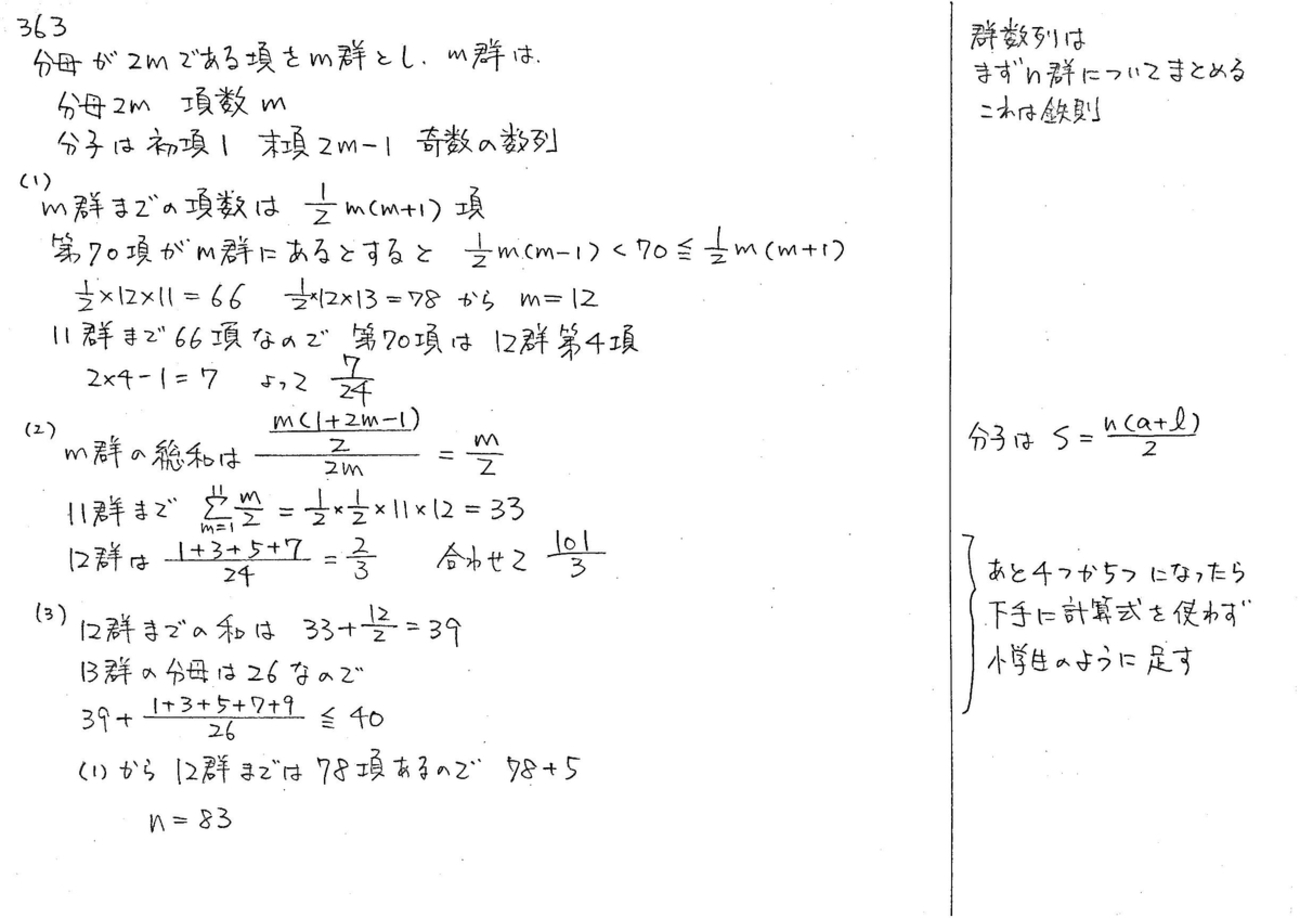 363
分母が2mである項をm群とし、m群は、
分母2m 項数m
分子は初項1 末項2m-1 奇数の数列
(1)
m群までの項数は 1/2 m(m+1) 項
第70項がm群にあるとすると 1/2 m(m-1) < 70 ≦ 1/2 m(m+1)
1/2×12×11=66 1/2×12×13=78 から m=12
11群まで66項なので 第70項は 12群第4項
2×4-1=7 よって 7/24
(2)
m群の総和は (m(1+2m-1)/2)/2m = m/2
11群まで Σ[m=1→11] m/2 = 1/2×1/2×11×12=33
12群は (1+3+5+7)/24 = 2/3 合わせて 101/3
(3)
12群までの和は 33+12/2=39
13群の分母は26なので
39+(1+3+5+7+9)/26 ≦ 40
(1)から12群までは78項あるので 78+5
n=83
群数列は
まずn群についてまとめる
これは鉄則
分子は S=n(a+l)/2
あと4つか5つになったら
下手に計算式を使わず
小学生のように足す